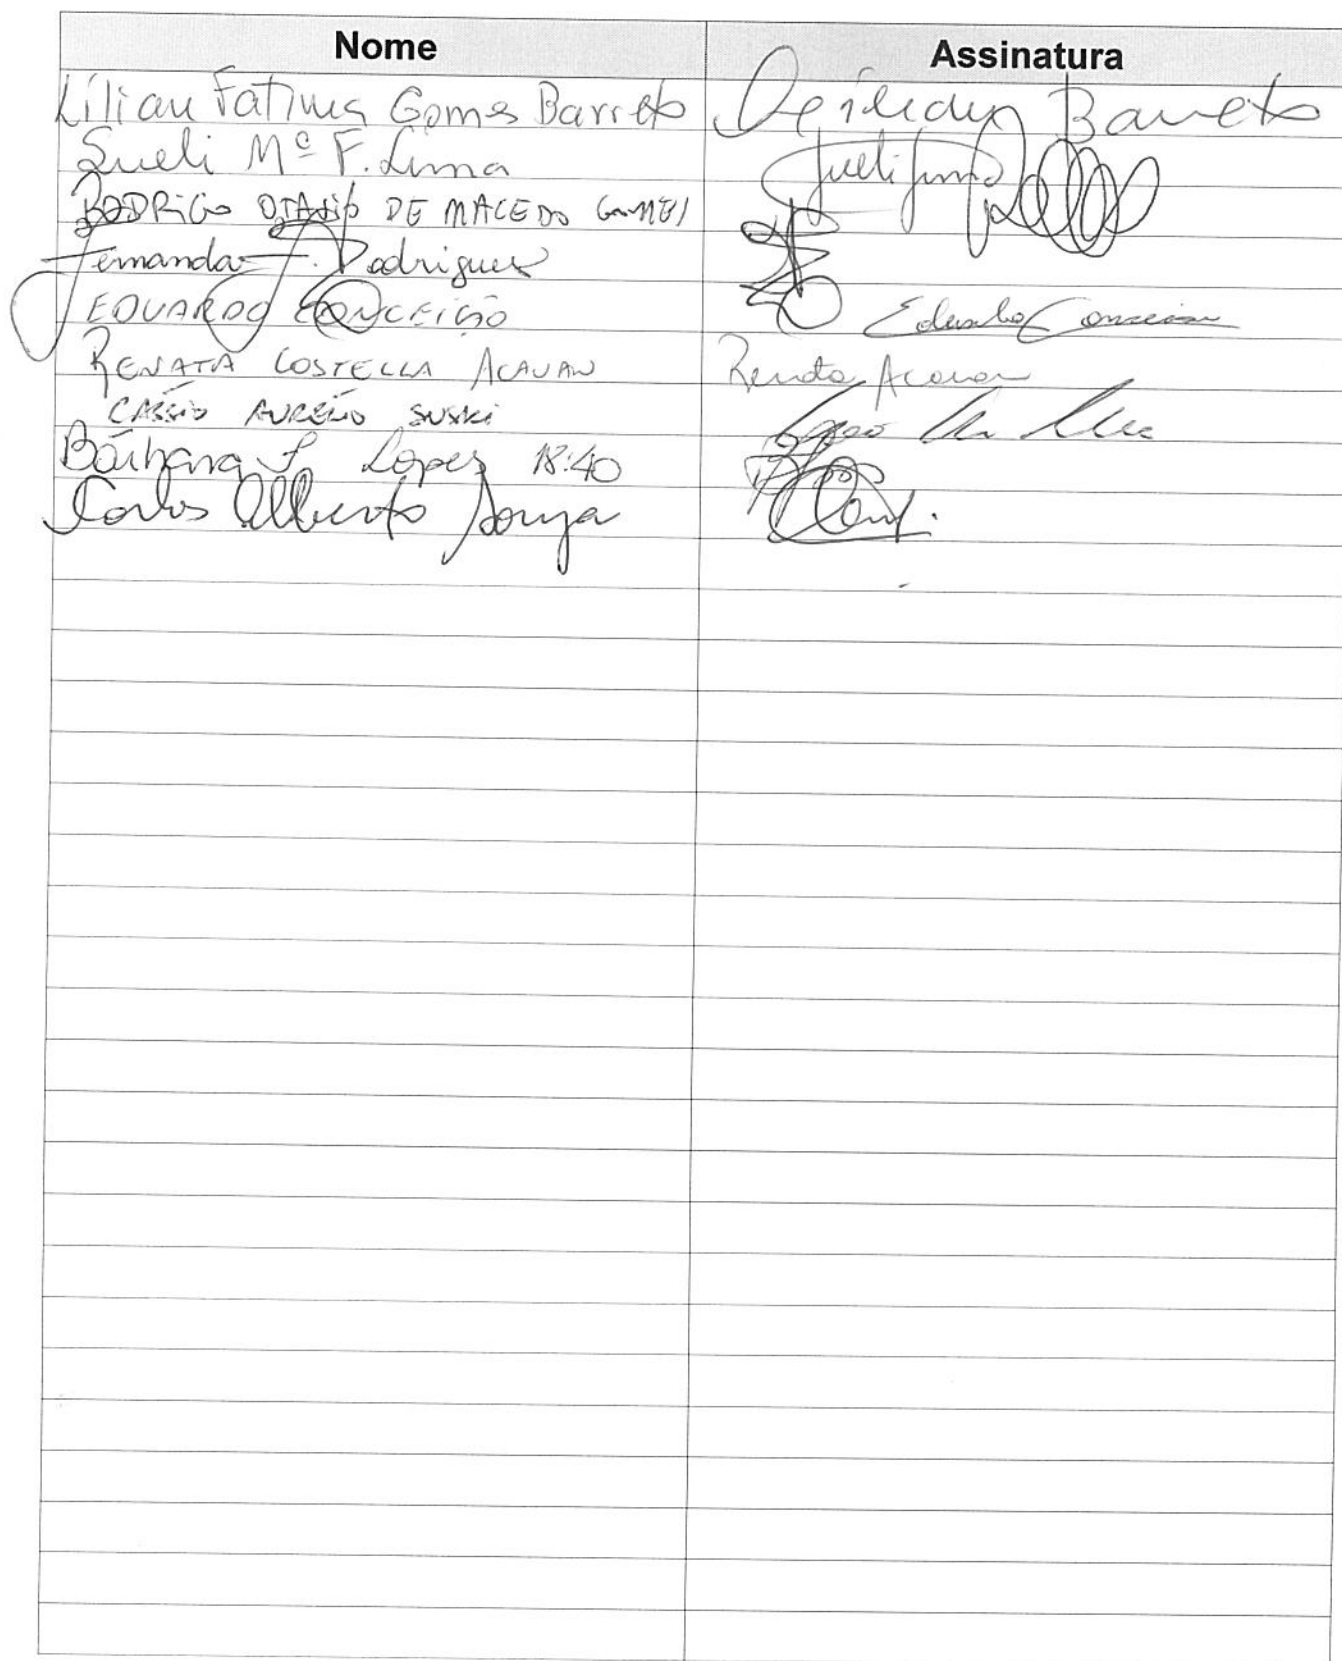 Nome Assinatura
Lílian Fatima Gomes Barreto Barreto
Sueli Mª F. Lima Sueli Lima
RODRIGO OTAVIO DE MACEDO GOMES
Fernanda F. Rodrigues
EDUARDO CONCEIÇÃO Eduardo Conceição
RENATA COSTELLA ACAUAN Renata Acauan
CASSIO AURELIO SUSKI
Bárbara S. Lopes 18:40
Carlos Alberto Souza